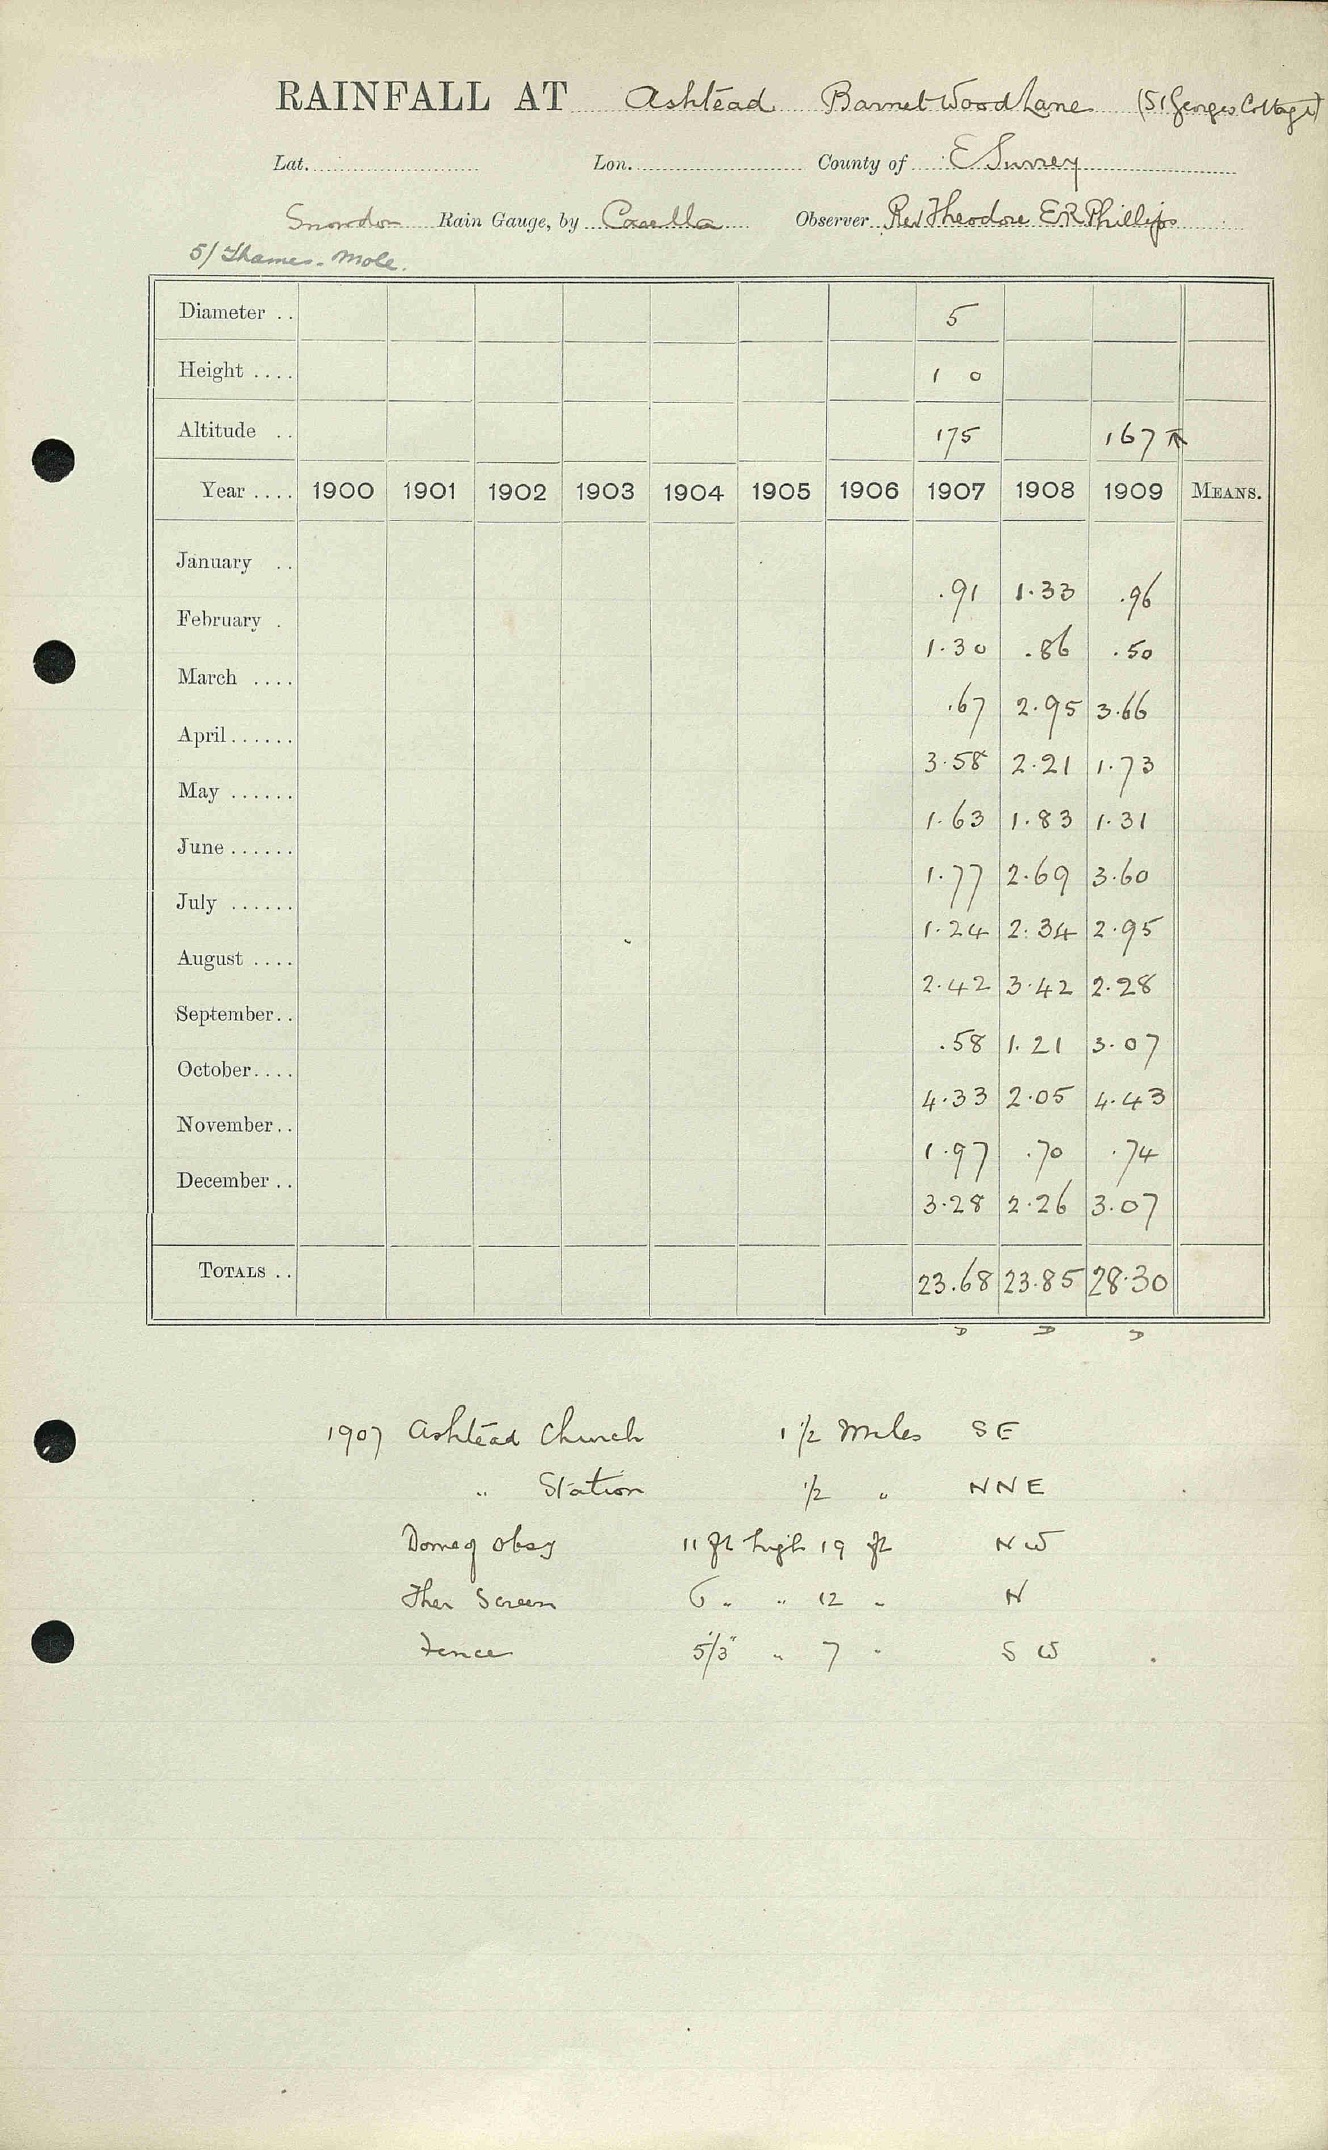 RAINFALL AT Ashtead Barnet Wood Lane (St Georges Cottage)
Lat. Lon. County of E Surrey
Snowdon Rain Gauge, by Casella Observer Rev Theodore E R Phillips
5/ Thames - Mole.
Diameter .. 5
Height .... 1 0
Altitude .. 175 167
Year .... 1900 1901 1902 1903 1904 1905 1906 1907 1908 1909 MEANS.
January .. .91 1.33 .96
February . 1.30 .86 .50
March .... .67 2.95 3.66
April...... 3.58 2.21 1.73
May ...... 1.63 1.83 1.31
June...... 1.77 2.69 3.60
July ...... 1.24 2.34 2.95
August .... 2.42 3.42 2.28
September.. .58 1.21 3.07
October.... 4.33 2.05 4.43
November.. 1.97 .70 .74
December .. 3.28 2.26 3.07
TOTALS .. 23.68 23.85 28.30
D D D
1907 Ashtead Church 1 1/2 Miles SE
" Station 1/2 " NNE
Dome of Obsy 11 ft high 19 ft NW
Ther Screen 6 " " 12 " N
Fence 5/3" " 7 " SW